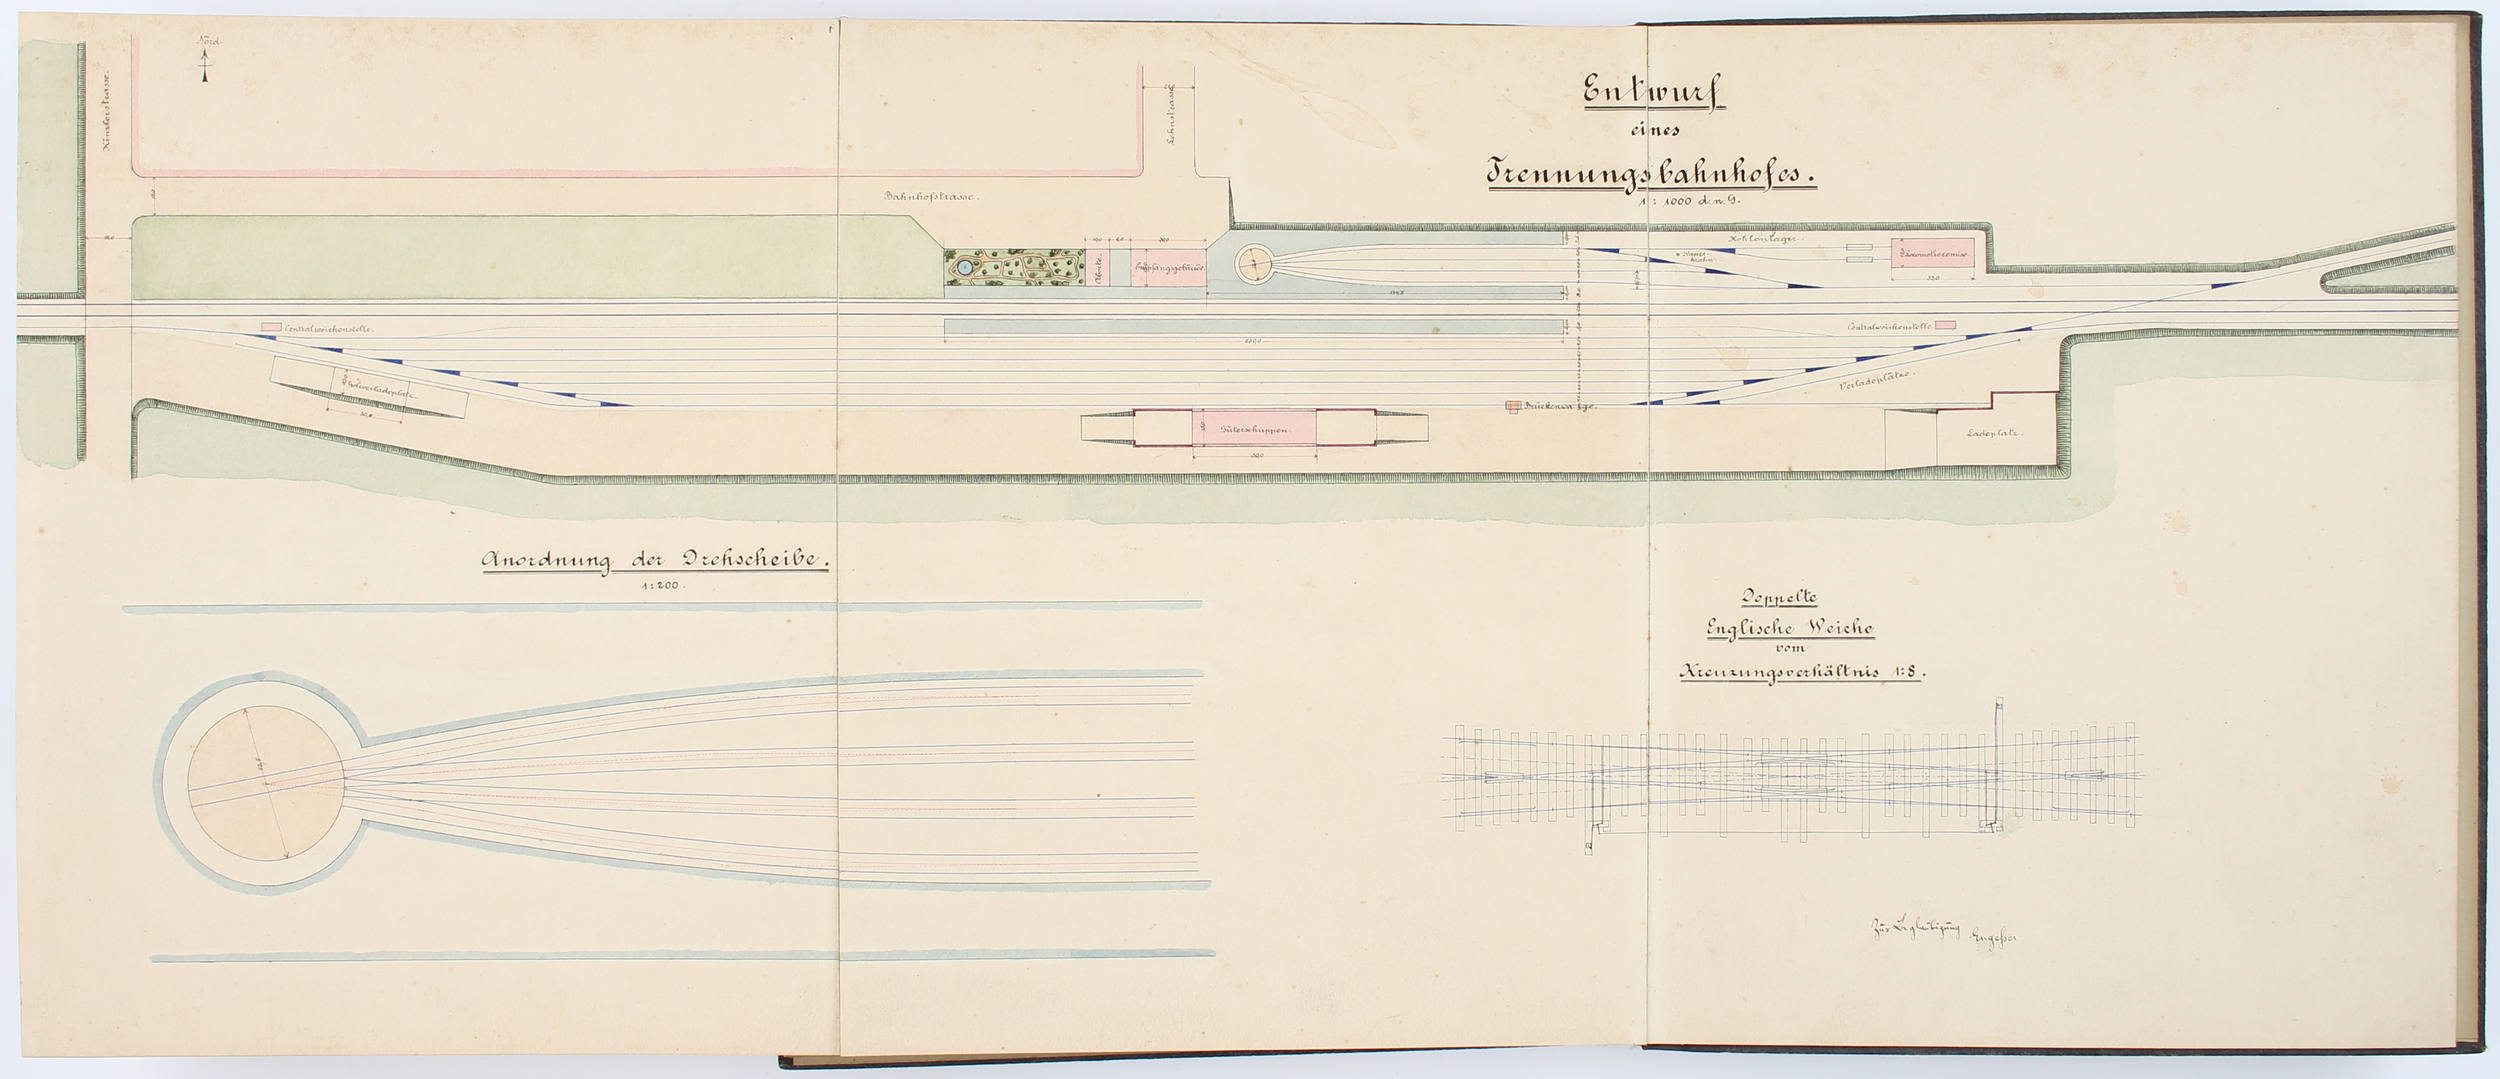 Nord
Entwurf
eines
Trennungsbahnhofes.
1 : 1000 d. n. G.
Bahnhofstrasse.
Kohlenlager.
Aborte.
Empfangsgebäude.
Lokomotivremise
Centralweichenstelle.
Centralweichenstelle
Holzverladeplatz.
Verladeplätze.
Güterschuppen.
Brückenwaage.
Ladeplatz.
600,0
50,0
Anordnung der Drehscheibe.
1:200.
Doppelte
Englische Weiche
vom
Kreuzungsverhältnis 1:8.
Zur Beglaubigung
Engeßer